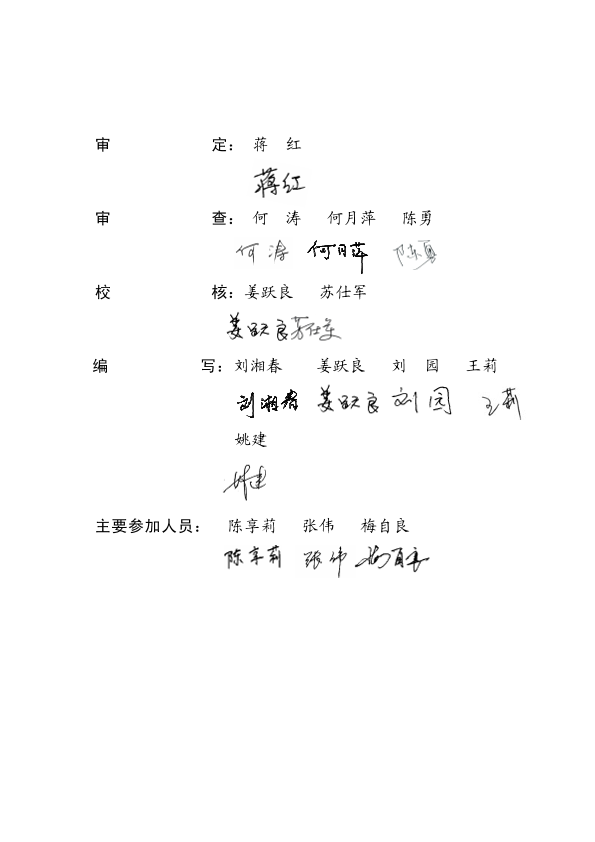 审 定： 蒋 红
蒋红
审 查： 何 涛 何月萍 陈勇
何涛 何月萍 陈勇
校 核：姜跃良 苏仕军
姜跃良 苏仕军
编 写：刘湘春 姜跃良 刘 园 王莉
刘湘春 姜跃良 刘园 王莉
姚建
姚建
主要参加人员： 陈享莉 张伟 梅自良
陈享莉 张伟 梅自良